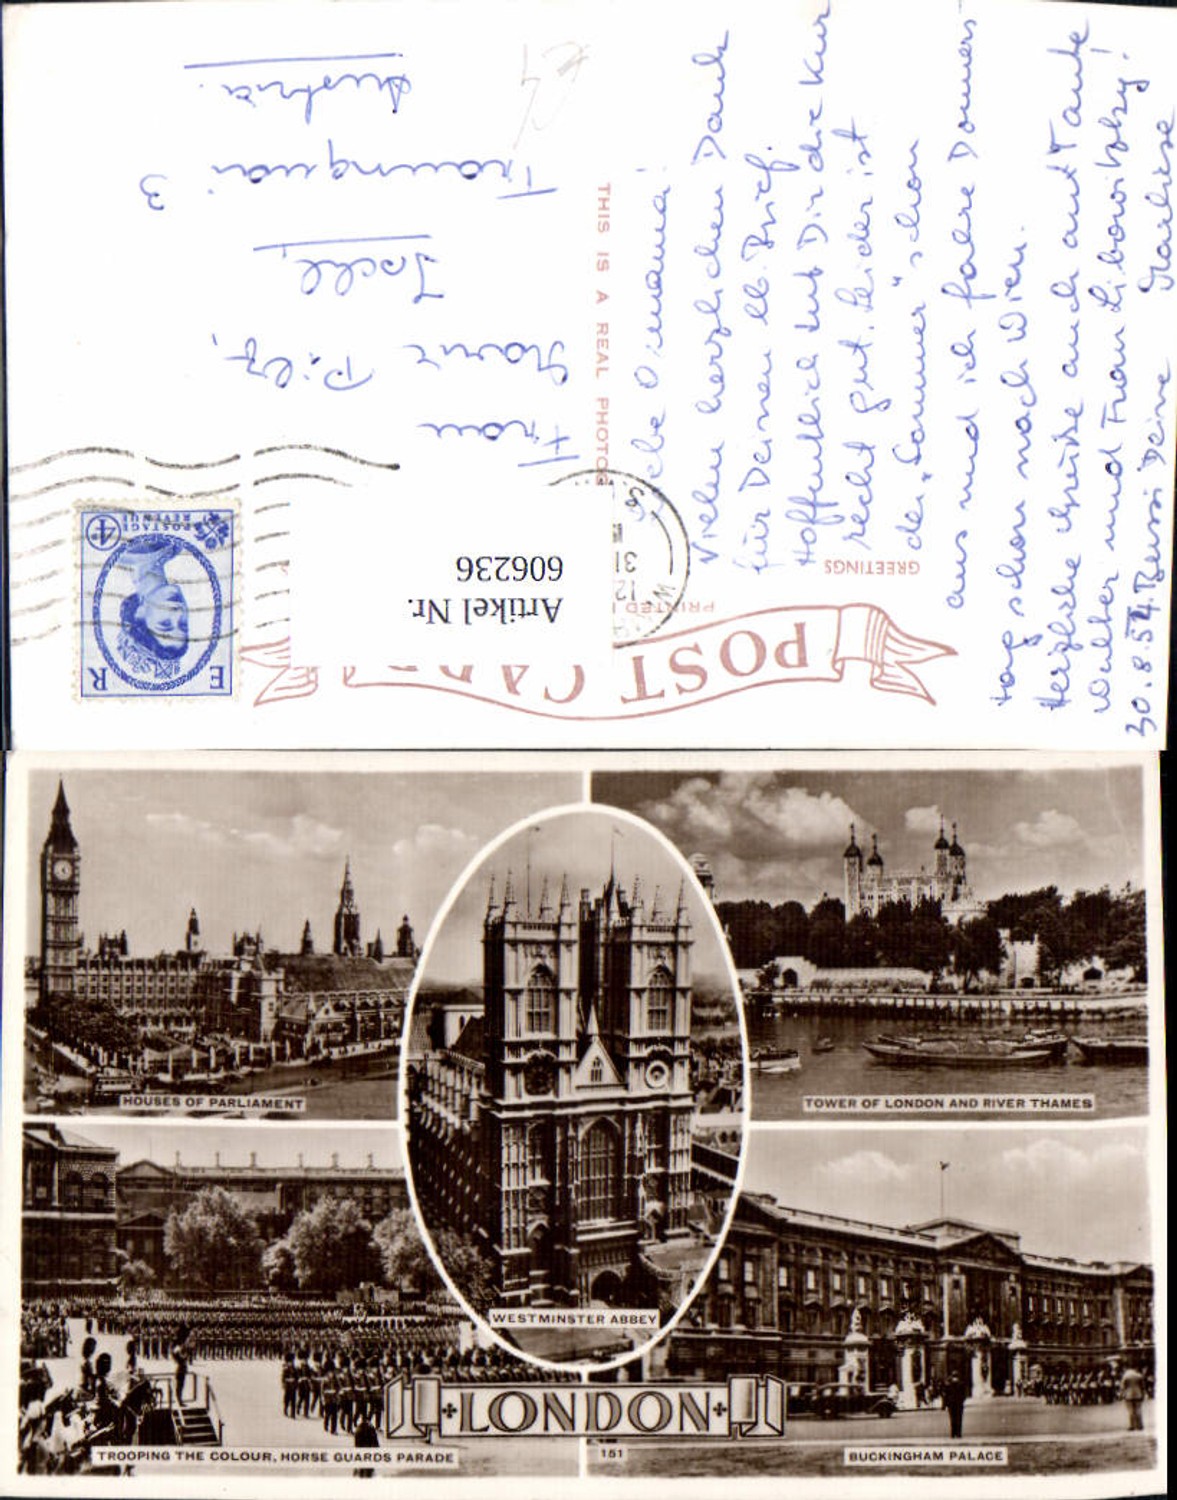 POST CARD
PRINTED
GREETINGS
THIS IS A REAL PHOTO
E R
POSTAGE
REVENUE
4D
Artikel Nr.
606236
12
31
Liebe Omama!
Vielen herzlichen Dank
für Deinen lb. Brief.
Hoffentlich tut Dir die Kur
recht gut. Leider ist
der "Sommer" schon
aus und ich fahre Donners-
tag schon nach Wien.
Herzliche Grüße auch an Tante
und Frau
30.8.54. Bussi Deine
Frau
Marie Pilz,
Ischl,
Traunquai 3
Austria.
HOUSES OF PARLIAMENT
TOWER OF LONDON AND RIVER THAMES
WESTMINSTER ABBEY
LONDON
TROOPING THE COLOUR, HORSE GUARDS PARADE
151
BUCKINGHAM PALACE